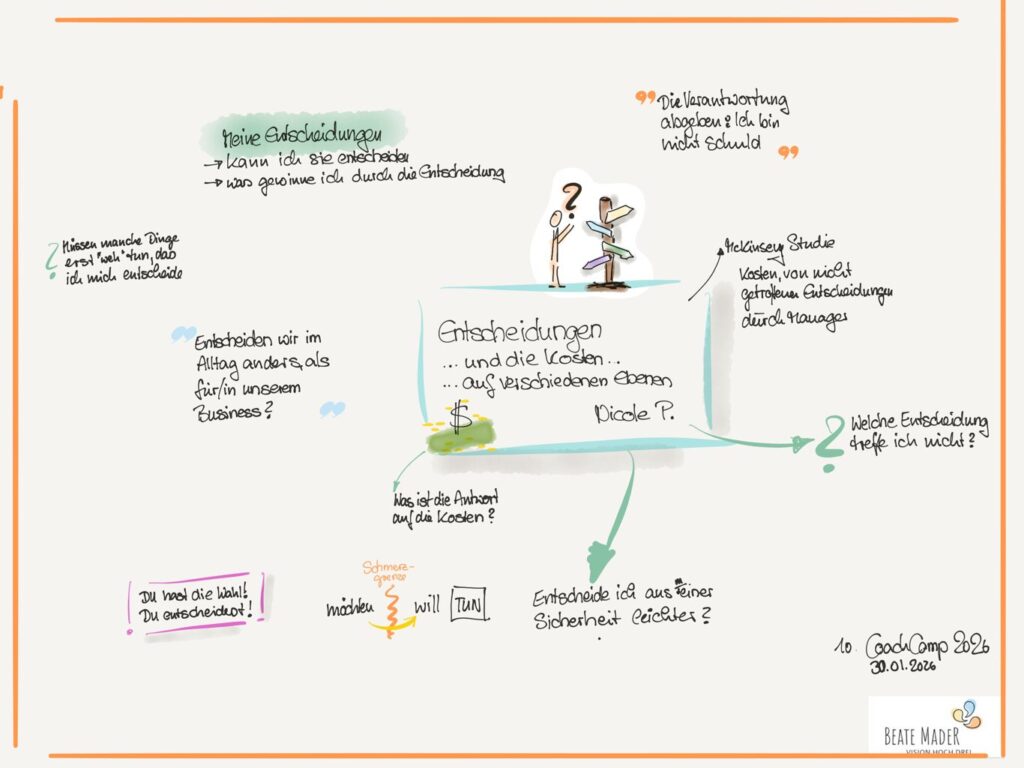 Meine Entscheidungen
→ kann ich sie entscheiden
→ was gewinne ich durch die Entscheidung
Die Verantwortung
abgeben? Ich bin
nicht Schuld
?
? Müssen manche Dinge
erst "weh" tun, das
ich mich entscheide
McKinsey Studie
Kosten, von nicht
getroffenen Entscheidungen
durch Manager
Entscheiden wir im
Alltag anders, als
für/in unserem
Business?
Entscheidungen
... und die Kosten...
... auf verschiedenen Ebenen
$
Nicole P.
? Welche Entscheidung
treffe ich nicht?
Was ist die Antwort
auf die Kosten?
Du hast die Wahl!
Du entscheidest!
Schmerz-
grenze
möchten will TUN
Entscheide ich aus meiner
Sicherheit leichter?
10. CoachCamp 2026
30.01.2026
BEATE MADER
VISION HOCH DREI